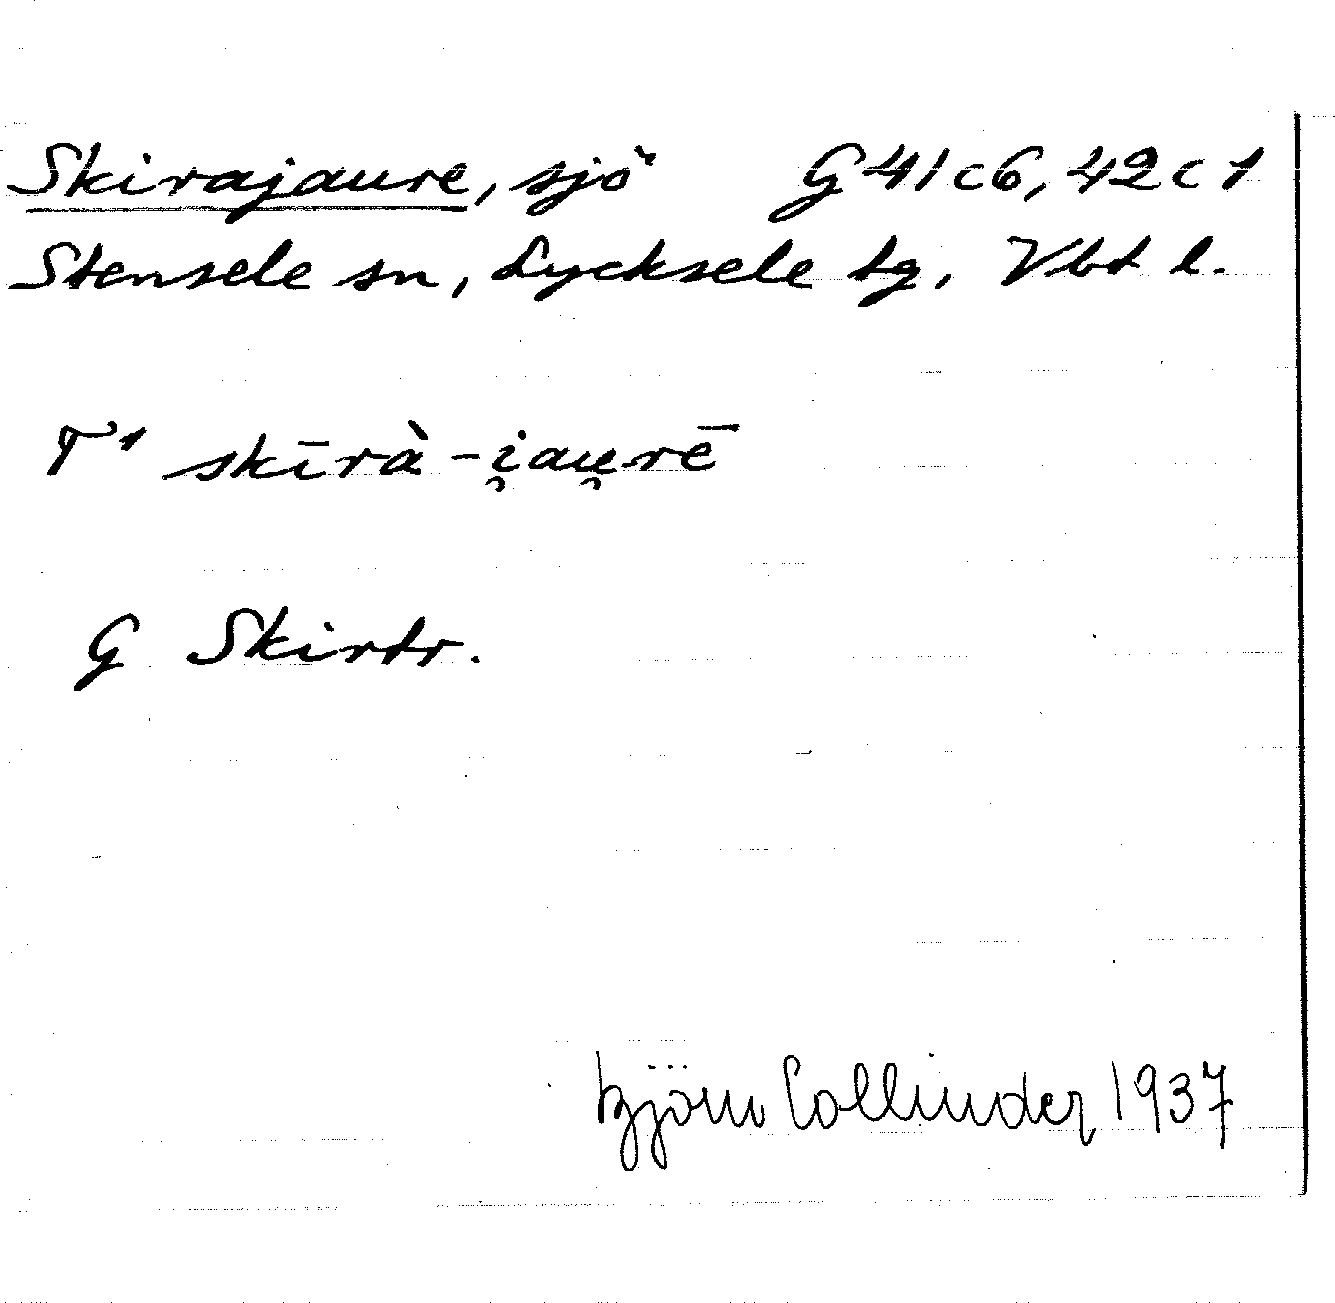 Skirajaure, sjö G 41 c 6, 42 c 1
Stensele sn, Lycksele tg, Vbt l.
T¹ skīrà-i̯au̯rē
G Skirtr.
Björn Collinder 1937